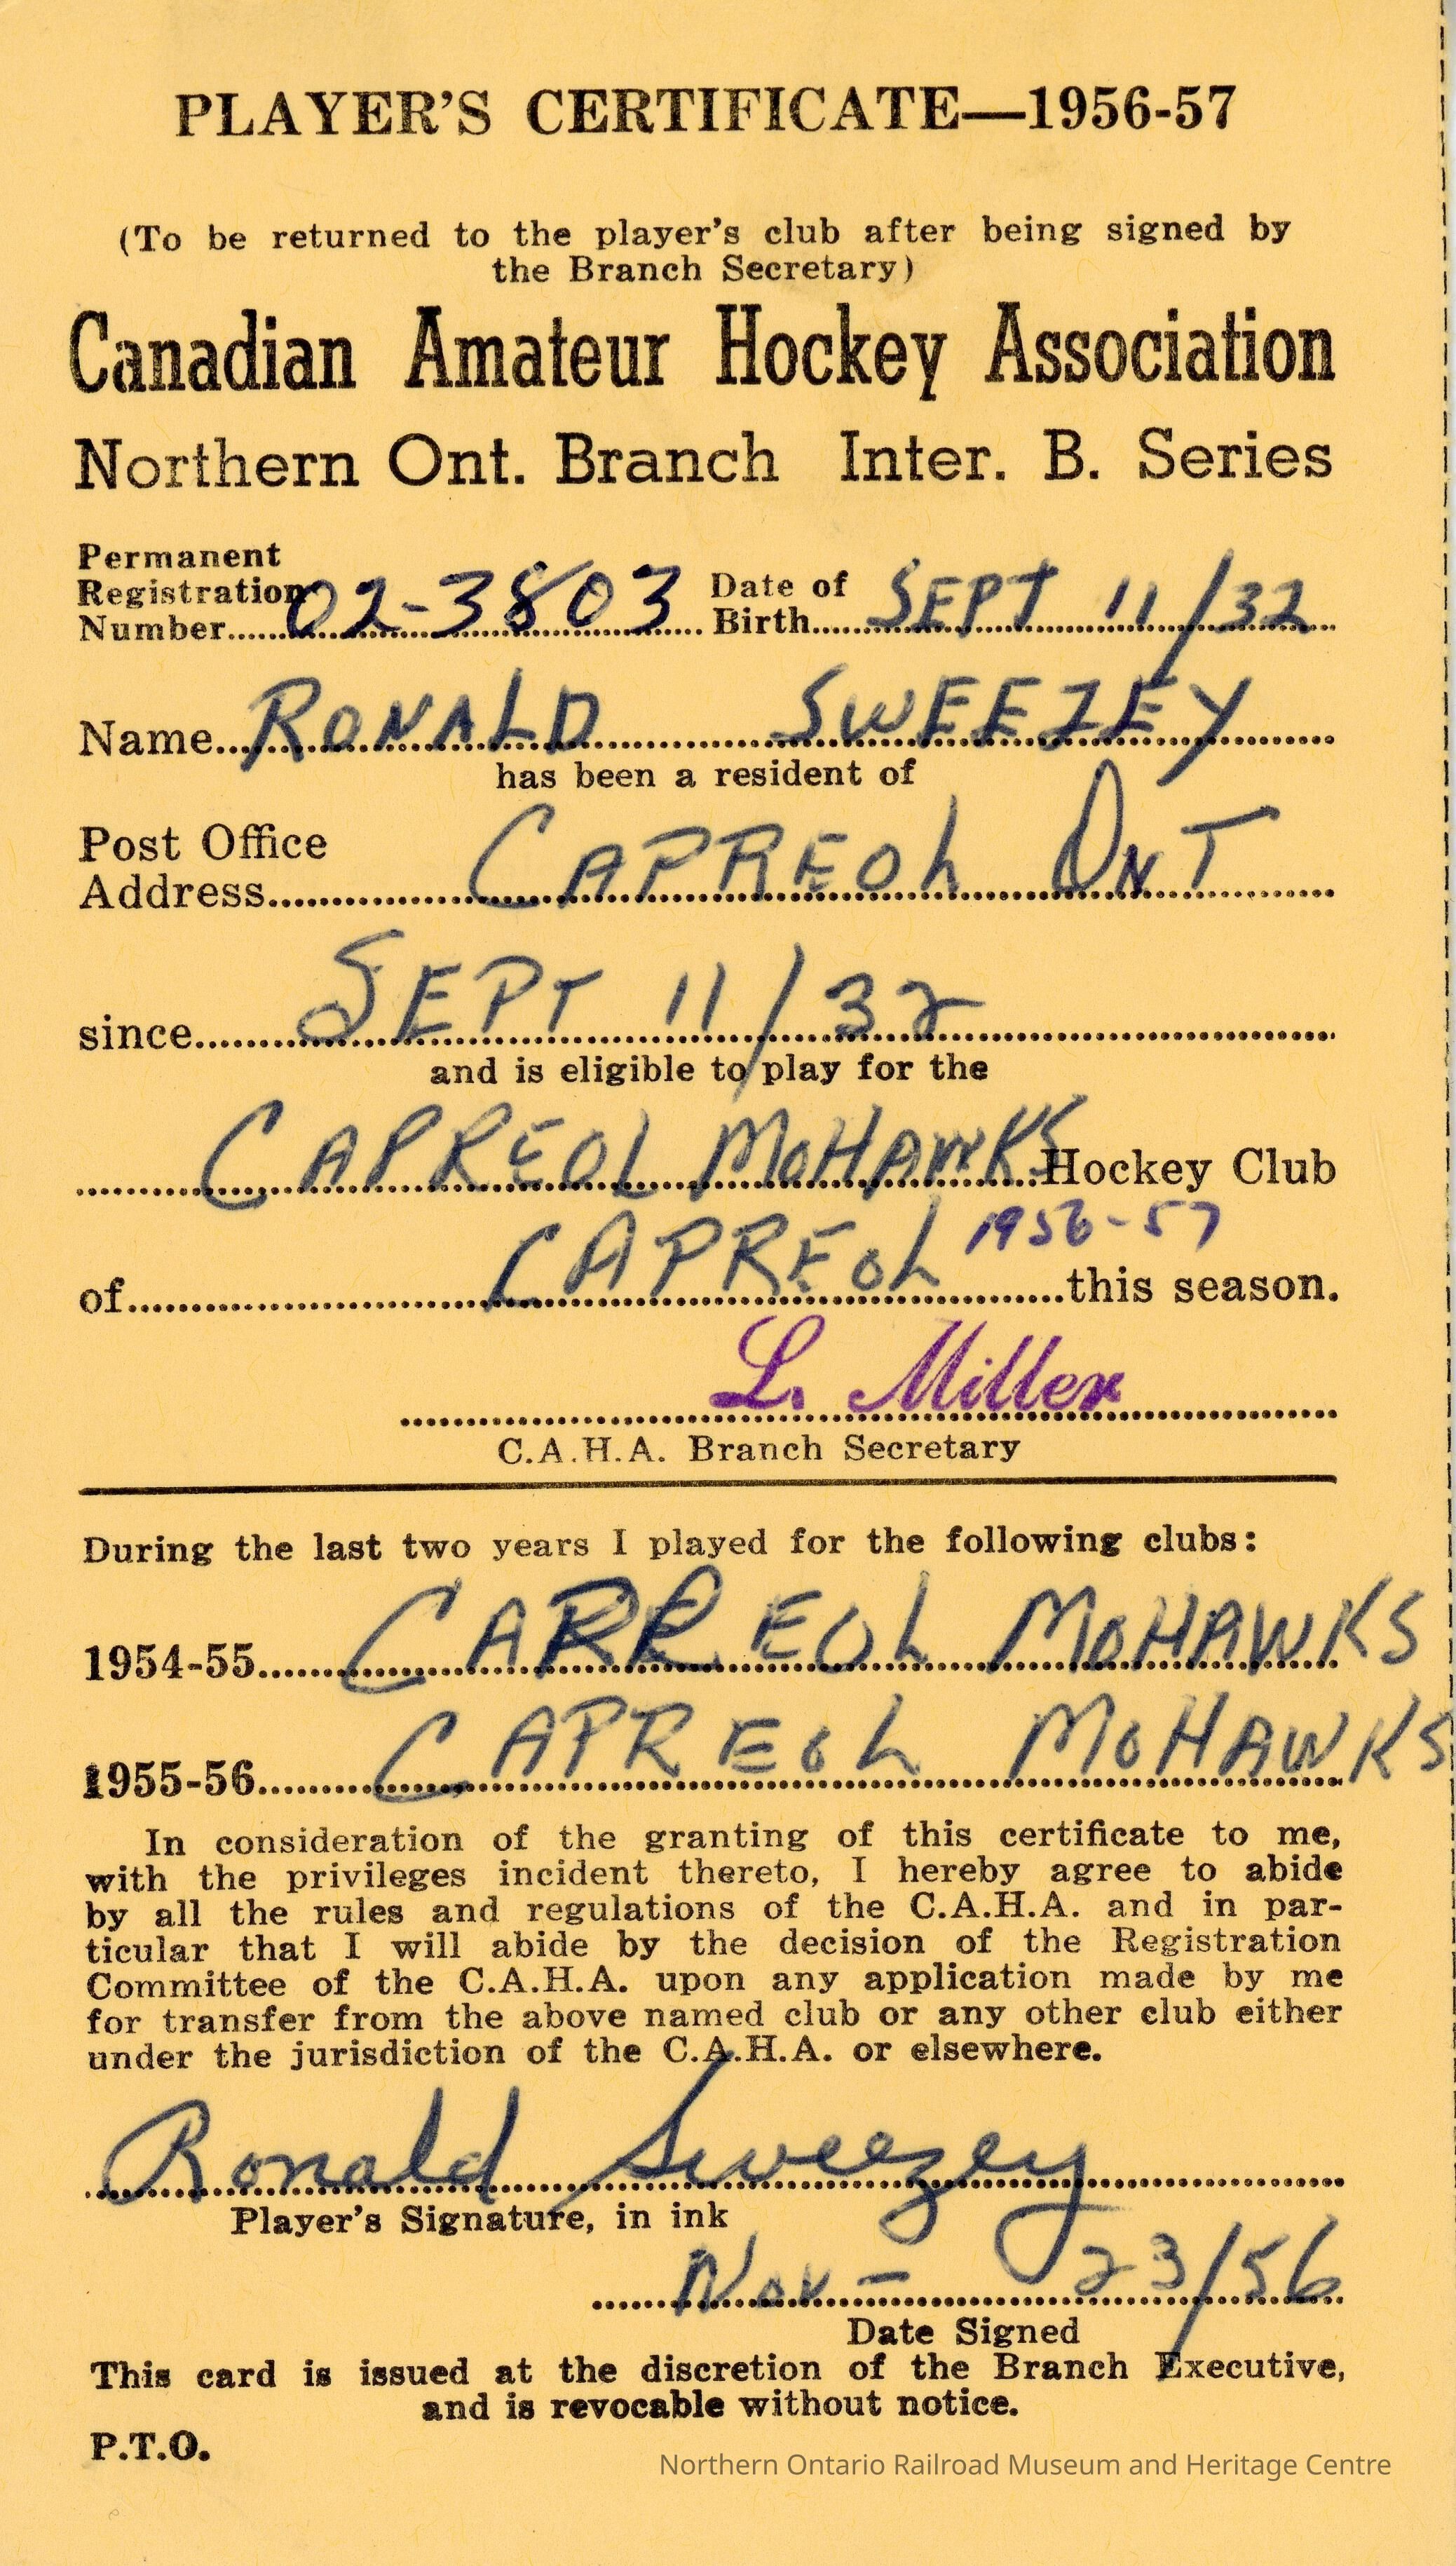 PLAYER'S CERTIFICATE—1956-57
(To be returned to the player's club after being signed by
the Branch Secretary)
Canadian Amateur Hockey Association
Northern Ont. Branch Inter. B. Series
Permanent
Registration
Number......02-3803 Date of
Birth......SEPT 11/32
Name...RONALD SWEEZEY
has been a resident of
Post Office
Address......CAPREOL ONT
since......SEPT 11/32
and is eligible to play for the
CAPREOL MOHAWKS Hockey Club
1956-57
of......CAPREOL......this season.
L. Miller
C.A.H.A. Branch Secretary
During the last two years I played for the following clubs:
1954-55......CAPREOL MOHAWKS
1955-56......CAPREOL MOHAWKS
In consideration of the granting of this certificate to me,
with the privileges incident thereto, I hereby agree to abide
by all the rules and regulations of the C.A.H.A. and in par-
ticular that I will abide by the decision of the Registration
Committee of the C.A.H.A. upon any application made by me
for transfer from the above named club or any other club either
under the jurisdiction of the C.A.H.A. or elsewhere.
Ronald Sweezey
Player's Signature, in ink
Nov - 23/56
Date Signed
This card is issued at the discretion of the Branch Executive,
and is revocable without notice.
P.T.O.
Northern Ontario Railroad Museum and Heritage Centre